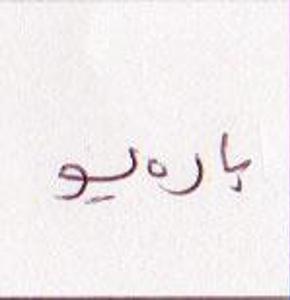 بارەیو